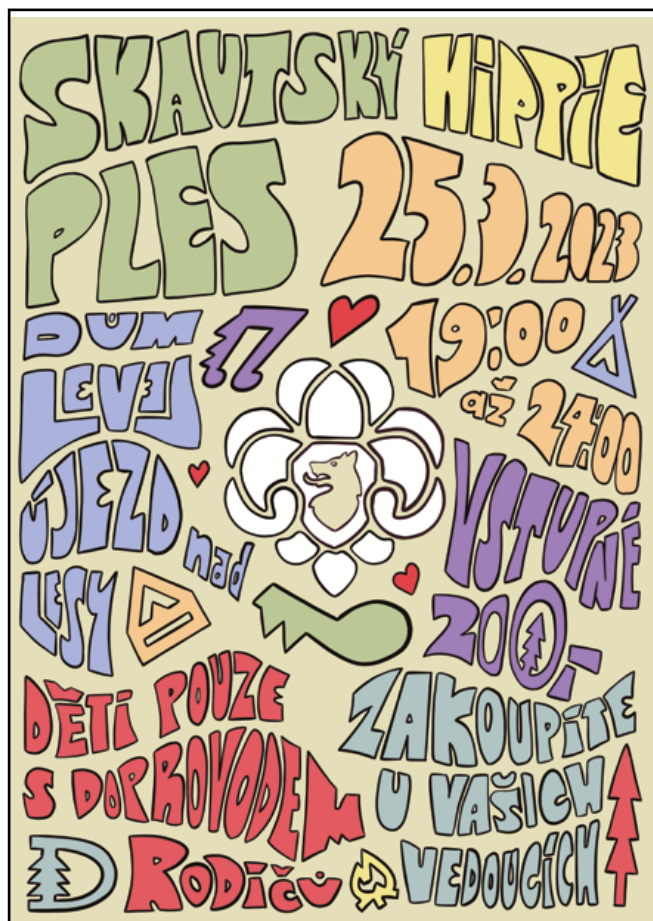 SKAUTSKÝ HiPPiE
PLES 25.3.2023
DUM
LEVEL
ÚJEZD
nad
LESY
19:00
až 24:00
VSTUPNÉ
200,-
DĚTi POUZE
S DOPROVODEM
RODiČŮ
ZAKOUPíTE
U VAŠiCH
VEDOUCíCH